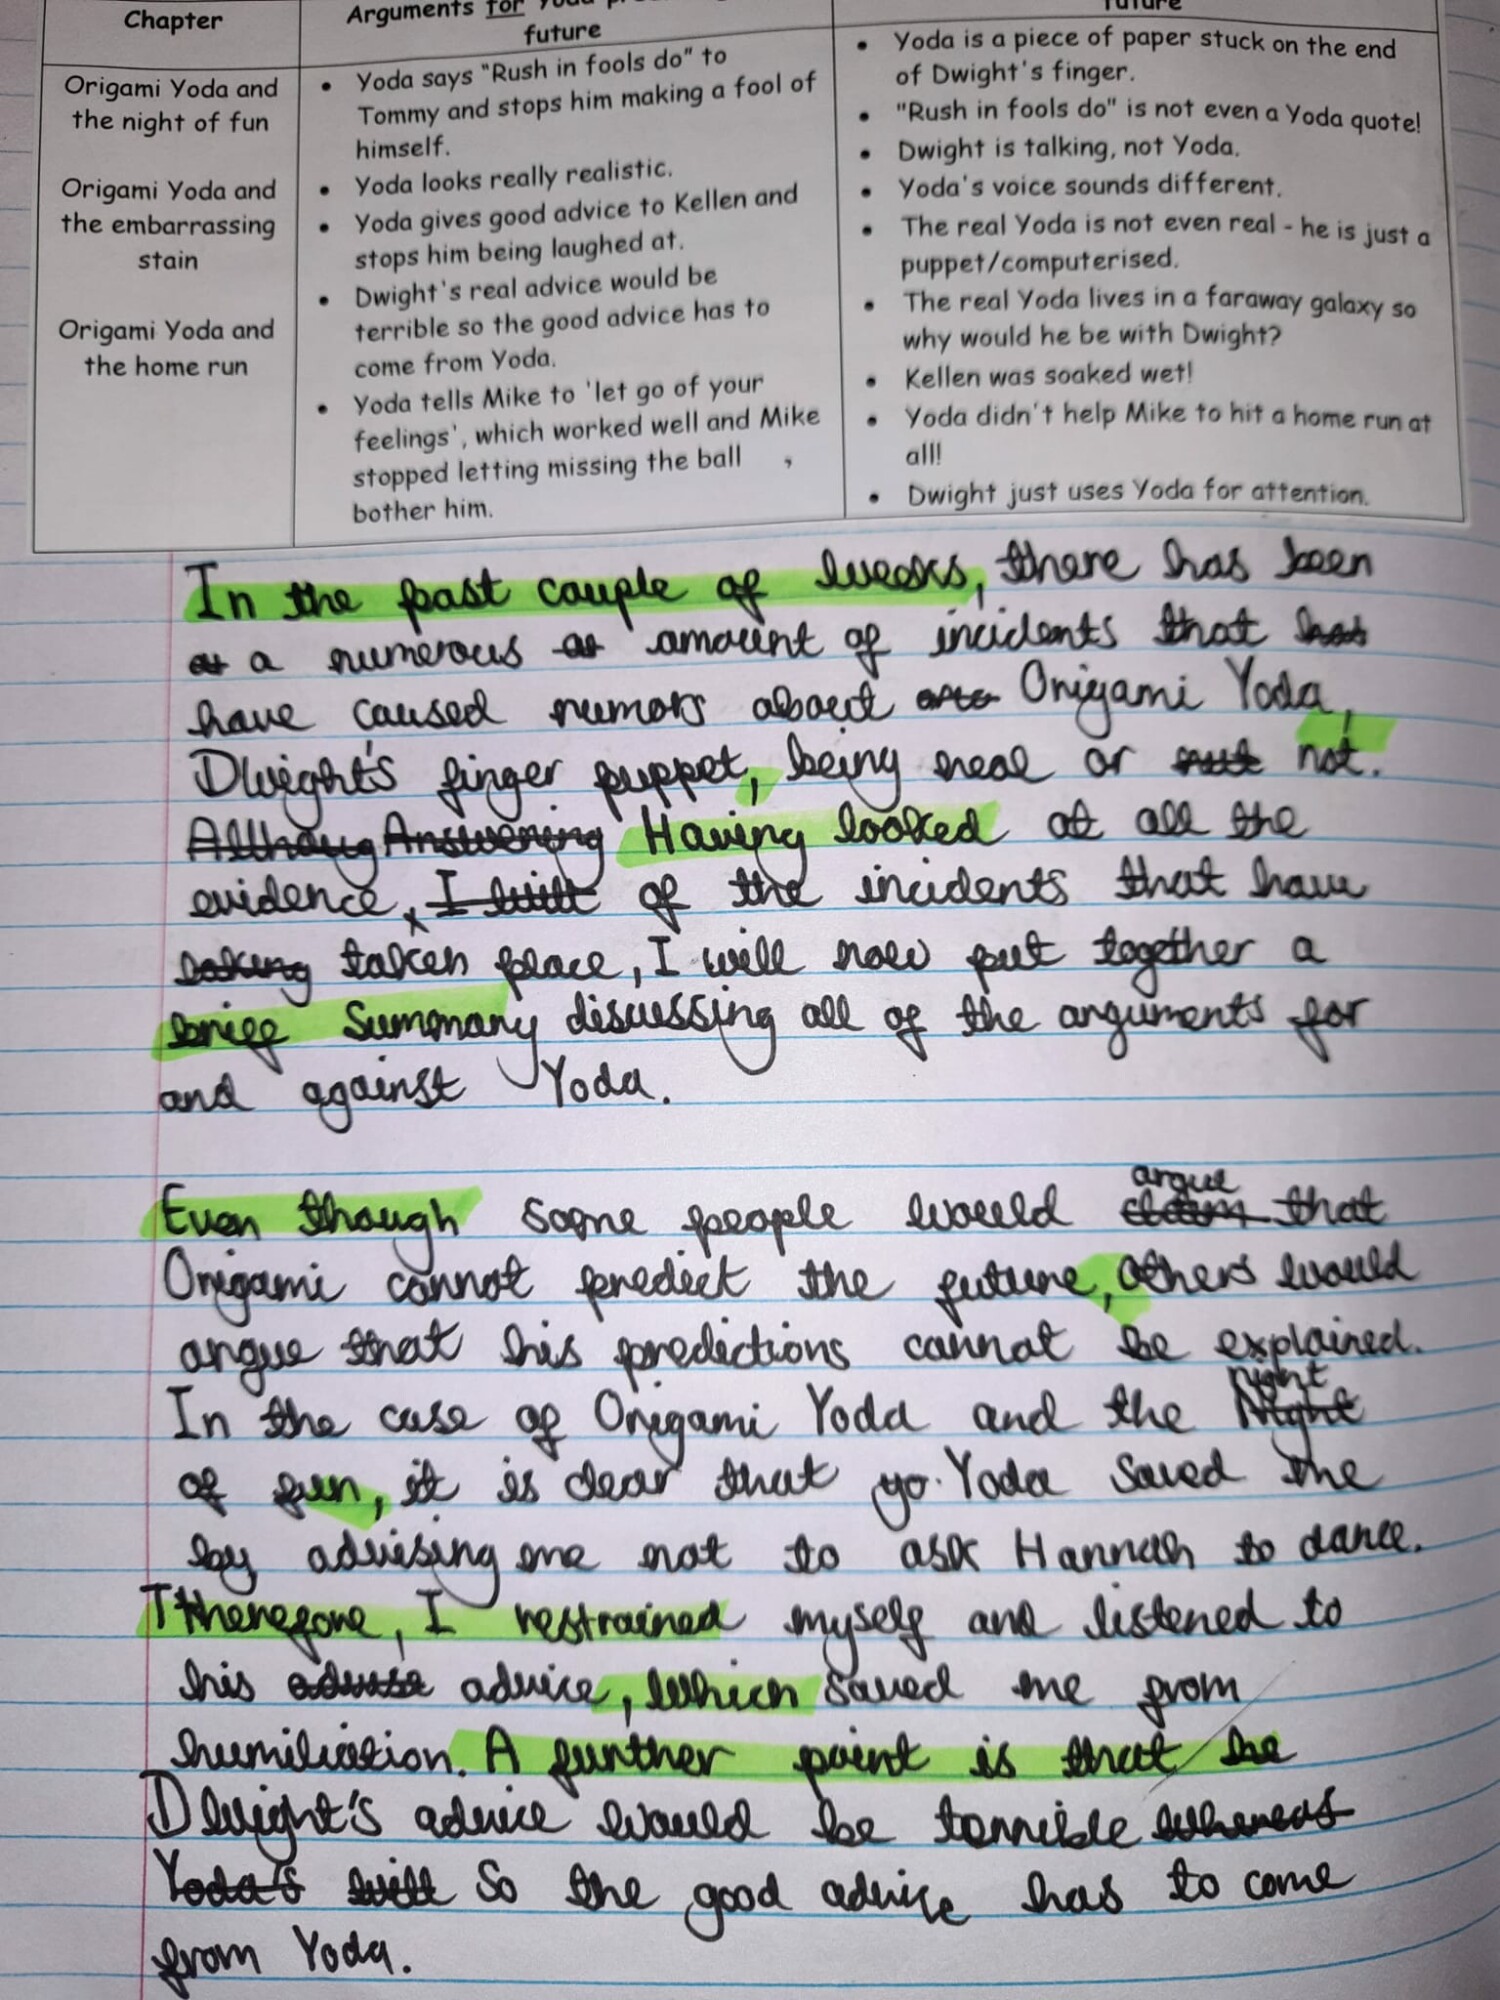 Chapter
Arguments for
future
future
Origami Yoda and
the night of fun
Origami Yoda and
the embarrassing
stain
Origami Yoda and
the home run
• Yoda says "Rush in fools do" to
Tommy and stops him making a fool of
himself.
• Yoda looks really realistic.
• Yoda gives good advice to Kellen and
stops him being laughed at.
• Dwight's real advice would be
terrible so the good advice has to
come from Yoda.
• Yoda tells Mike to 'let go of your
feelings', which worked well and Mike
stopped letting missing the ball ,
bother him.
• Yoda is a piece of paper stuck on the end
of Dwight's finger.
• "Rush in fools do" is not even a Yoda quote!
• Dwight is talking, not Yoda.
• Yoda's voice sounds different.
• The real Yoda is not even real - he is just a
puppet/computerised.
• The real Yoda lives in a faraway galaxy so
why would he be with Dwight?
• Kellen was soaked wet!
• Yoda didn't help Mike to hit a home run at
all!
• Dwight just uses Yoda for attention.
In the past couple of weeks, there has been
a numerous amount of incidents that has
have caused rumors about Origami Yoda,
Dwight's finger puppet, being real or not.
Althoug Answering Having looked at all the
evidence, of the incidents that have
taking taken place, I will now put together a
brief Summary discussing all of the arguments for
and against Yoda.
Even though some people would claim argue that
Origami cannot predict the future, others would
argue that his predictions cannot be explained.
In the case of Origami Yoda and the Night night
of fun, it is clear that yo. Yoda saved me
by advising me not to ask Hannah to dance.
Ttherefore, I restrained myself and listened to
his advice, which saved me from
humiliation. A further point is that he
Dwight's advice would be terrible whereas
Yoda's will So the good advice has to come
from Yoda.